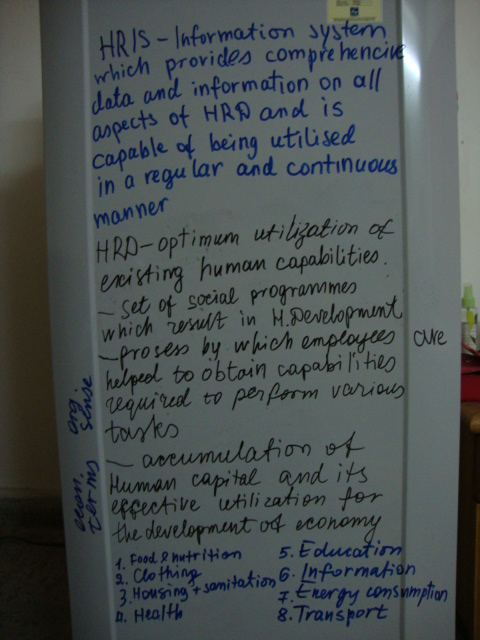 HRIS - Information system
which provides comprehencive
data and information on all
aspects of HRD and is
capable of being utilised
in a regular and continuous
manner
HRD - optimum utilization of
existing human capabilities.
- set of social programmes
which result in H. Development
- prosess by which employees are
helped to obtain capabilities
required to perform various
tasks
org. sense
- accumulation of
Human capital and its
effective utilization for
the development of economy
econ. terms
1. Food & nutrition
2. Clothing
3. Housing + sanitation
4. Health
5. Education
6. Information
7. Energy consumption
8. Transport